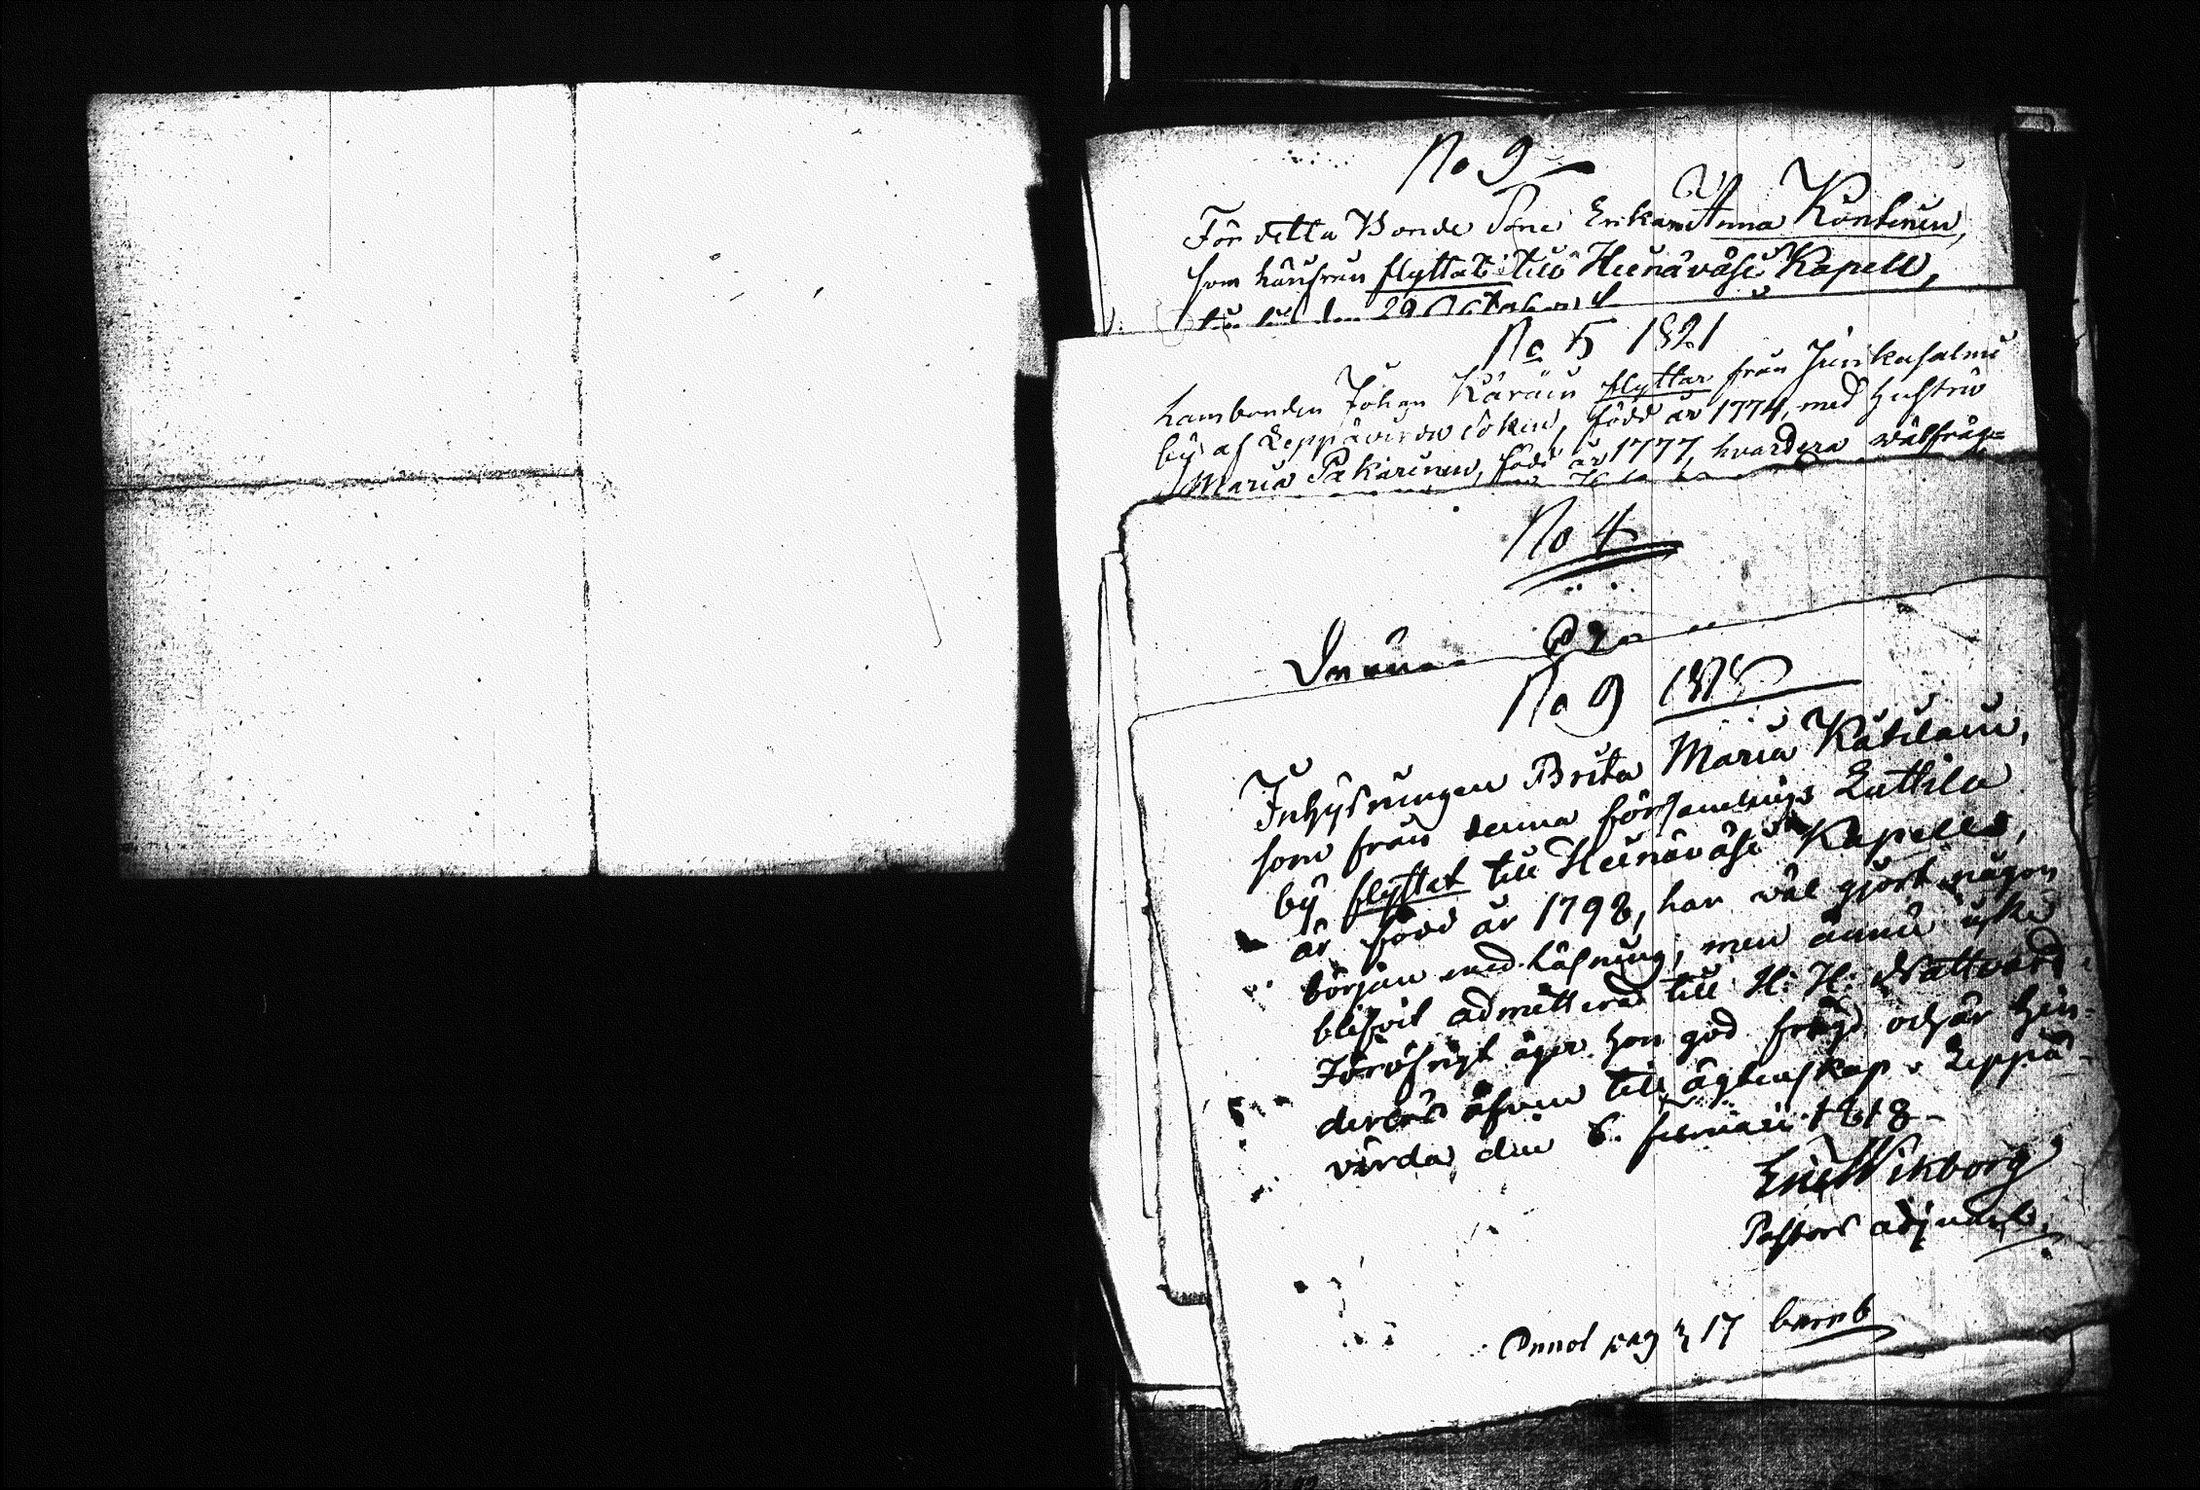 No 9
För detta Bonde Sone Enkan Anna Kontinen,
som härifrån flyttat till Heinäväsi Kapell,
den 29 October
No 5 1821
Lambonden Johan Käräin flyttar från Juikasalmi
by af Leppävirda Sokn, född år 1774, med hustru
Maria Pakarinen, född år 1777, hvardera välfräg=
No 4
No 9 1818
Inhysningen Brita Maria Kätilain,
som från denna församlings Luttila
by flyttat till Heinäväsi Kapell,
är född år 1798, har väl gjort någon
början med läsning, men ännu icke
blifvit admitterad till H: H: Nattvard.
Föröfrigt äger hon god frägd och är hin=
derlös äfven till ägtenskap. Leppä=
virda den 6. februarii 1818
Eric Wikborg
Pastors adjunct.
Annot pag 317 barnb